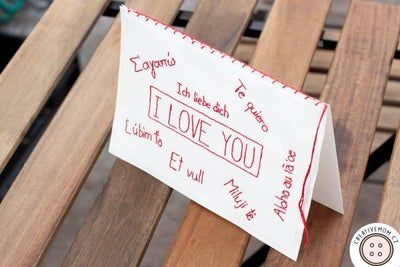 Σαγαπώ
Te quiero
Ich liebe dich
I LOVE YOU
Ľúbim ťa
Et vull
Miluji tě
Aloha au iā 'oe
CREATIVEMOM.CZ